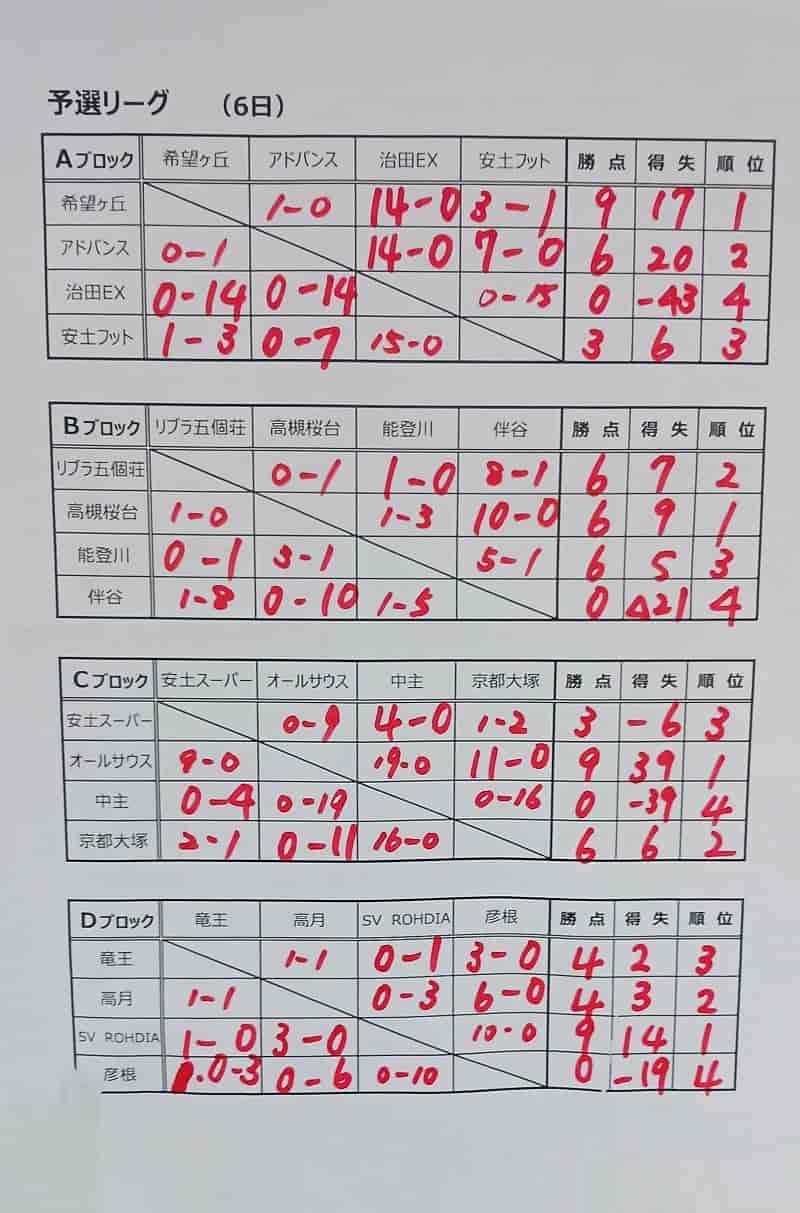 予選リーグ （6日）
Aブロック 希望ヶ丘 アドバンス 治田EX 安土フット 勝点 得失 順位
希望ヶ丘 1-0 14-0 3-1 9 17 1
アドバンス 0-1 14-0 7-0 6 20 2
治田EX 0-14 0-14 0-15 0 -43 4
安土フット 1-3 0-7 15-0 3 6 3
Bブロック リブラ五個荘 高槻桜台 能登川 伴谷 勝点 得失 順位
リブラ五個荘 0-1 1-0 8-1 6 7 2
高槻桜台 1-0 1-3 10-0 6 9 1
能登川 0-1 3-1 5-1 6 5 3
伴谷 1-8 0-10 1-5 0 △21 4
Cブロック 安土スーパー オールサウス 中主 京都大塚 勝点 得失 順位
安土スーパー 0-9 4-0 1-2 3 -6 3
オールサウス 9-0 19-0 11-0 9 39 1
中主 0-4 0-19 0-16 0 -39 4
京都大塚 2-1 0-11 16-0 6 6 2
Dブロック 竜王 高月 SV ROHDIA 彦根 勝点 得失 順位
竜王 1-1 0-1 3-0 4 2 3
高月 1-1 0-3 6-0 4 3 2
SV ROHDIA 1-0 3-0 10-0 9 14 1
彦根 0-3 0-6 0-10 0 -19 4